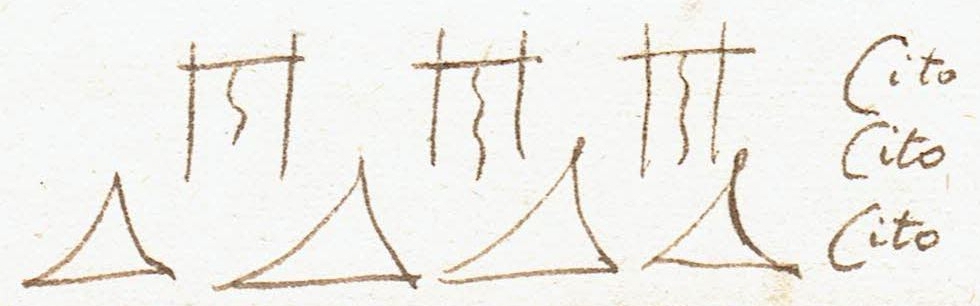 Cito
Cito
Cito